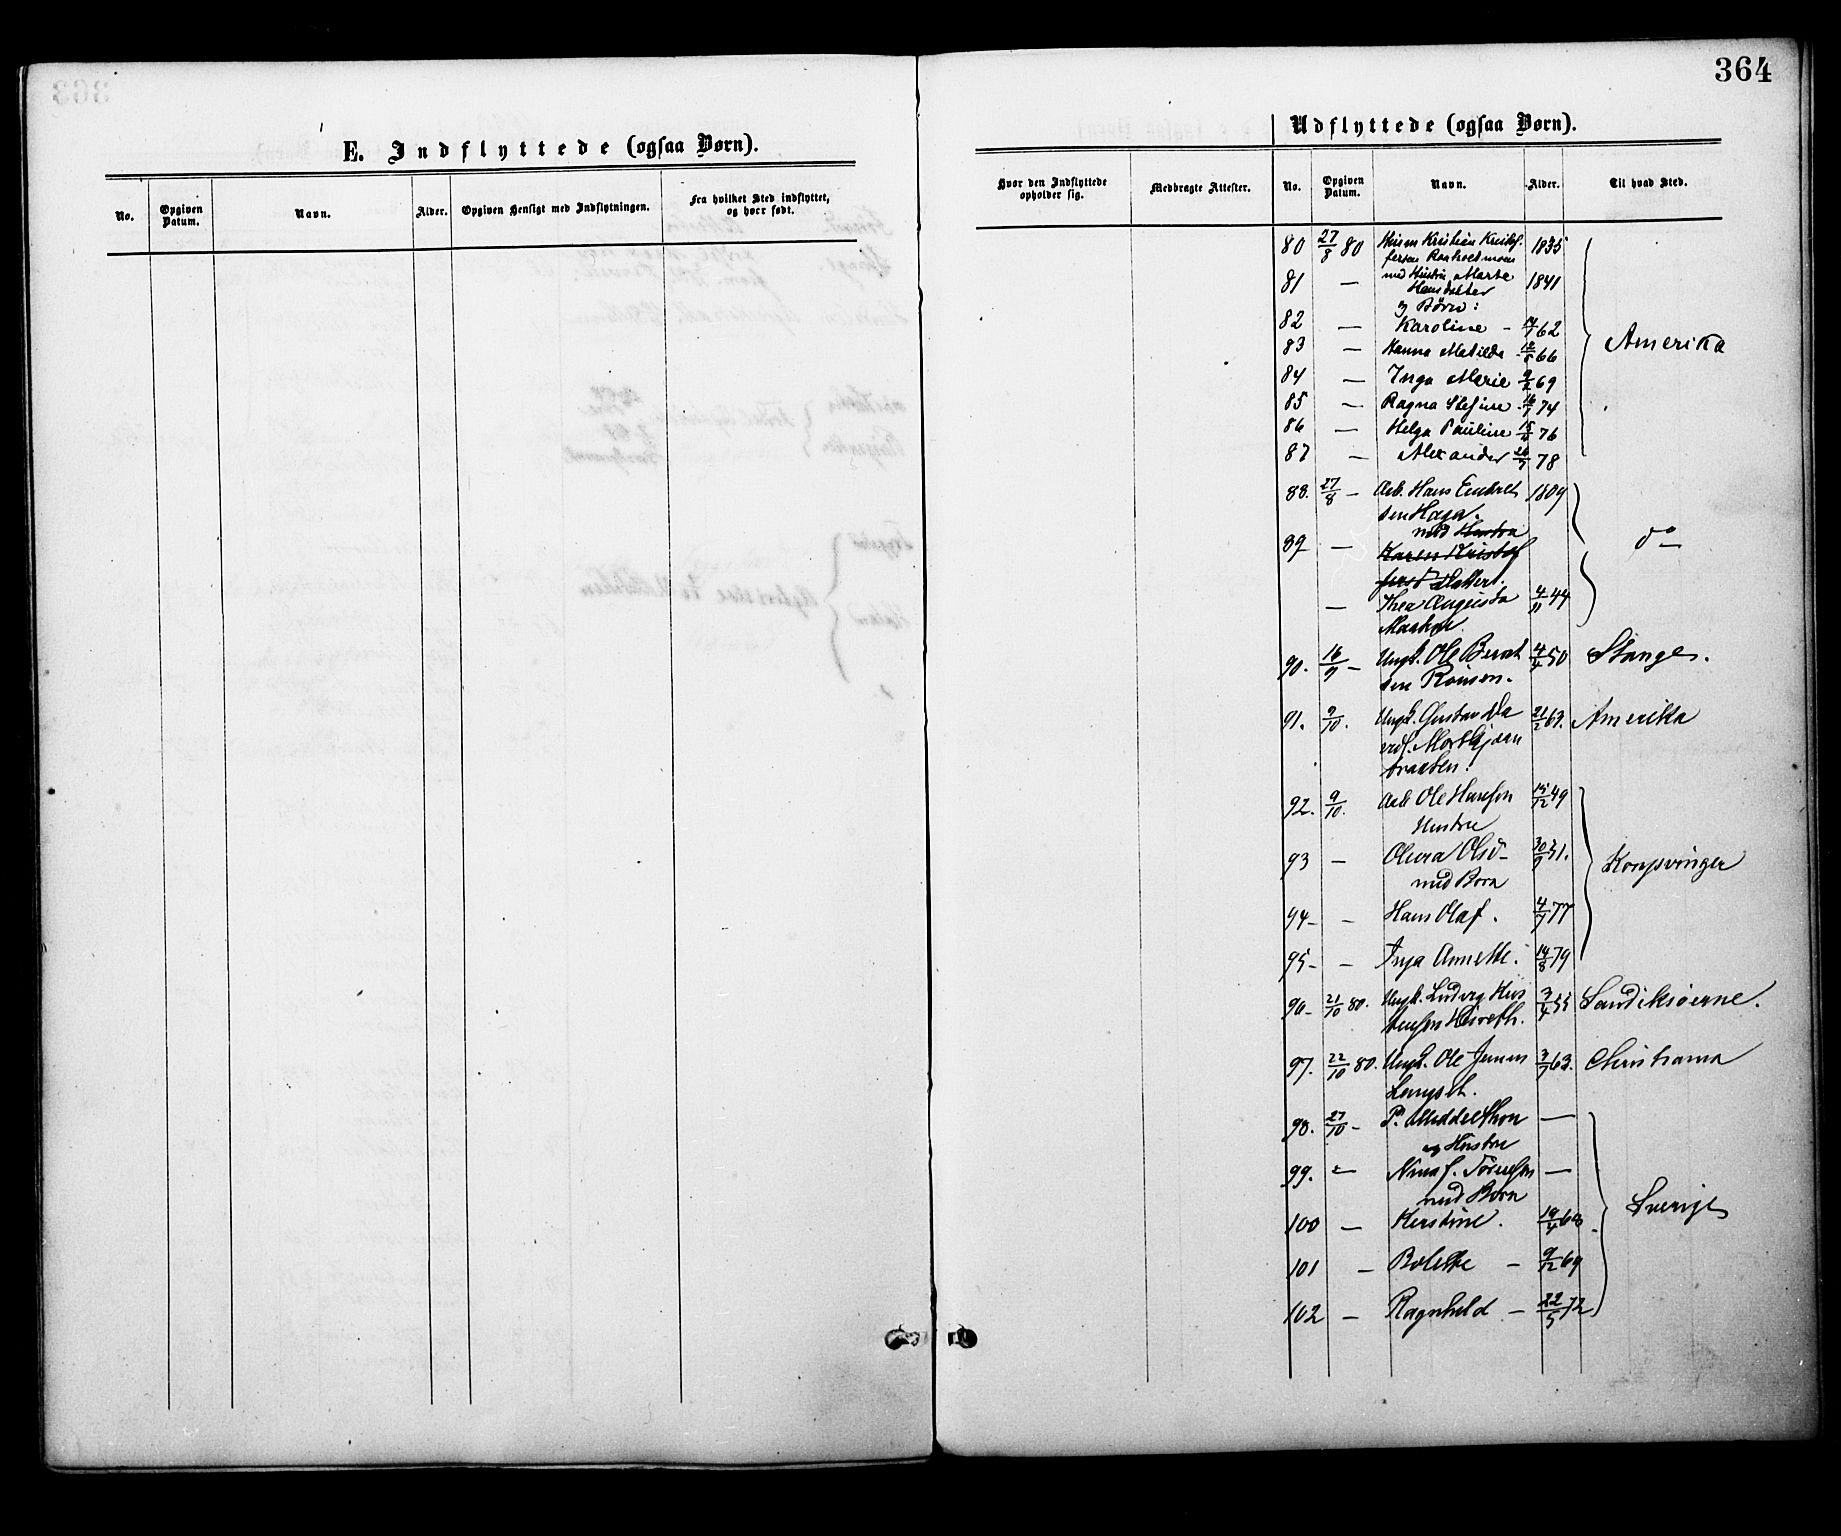 364
E. Indflyttede (ogsaa Børn).
No.
Opgiven Datum.
Navn.
Alder.
Opgiven Hensigt med Indflytningen.
Fra hvilket Sted indflyttet, og hvor født.
Udflyttede (ogsaa Børn).
Hvor den Indflyttede opholder sig.
Medbragte Attester.
No.
Opgiven Datum.
Navn.
Alder.
Til hvad Sted.
80 27/8 80 Kristian Kristof- 1835
fersen
81 — med Hustru Marte 1841
Hansdatter
og Børn:
82 — Karoline – /7 62
83 — Hanna Matilde 66
Amerika
84 — Inga Marie 9/2 69
85 — Ragna Stefine 16/7 74
86 — Helga Pauline 76
87 — Alexander 78
88. 27/8 — Arb. Hans Engebret 1809
sen Haga.
med Hustru
89 — Karen Kristof
fersdatter.
do
— Thea Augusta 4/11 44
90. 16/9 – Ungk. Ole Bernt 4/4 50 Stange.
sen
91. 9/10. Ungk. Gustav 21/2 63. Amerika
braaten.
92. 9/10. Arb Ole Hansen 15/12 49
Hustru
93 — Olsd– 30/9 51.
med Børn
Kongsvinger
94– – Hans Olaf. 4/7 77
95– – Inga Annette. 14/8 79
96– 21/10 80. Ungk. Ludvig 3/4 55 Sandviksøerne.
97. 22/10 80. Ungk. Ole Jensen 3/7 63. Christiania
98. 27/10 – P. Middelthon —
og Hustru
99. — Nina f. —
med Børn
100 — Kerstine. 19/4 68
Sverige
101 – Bolette – 9/12 69
102 – Ragnhild – 22/5 72